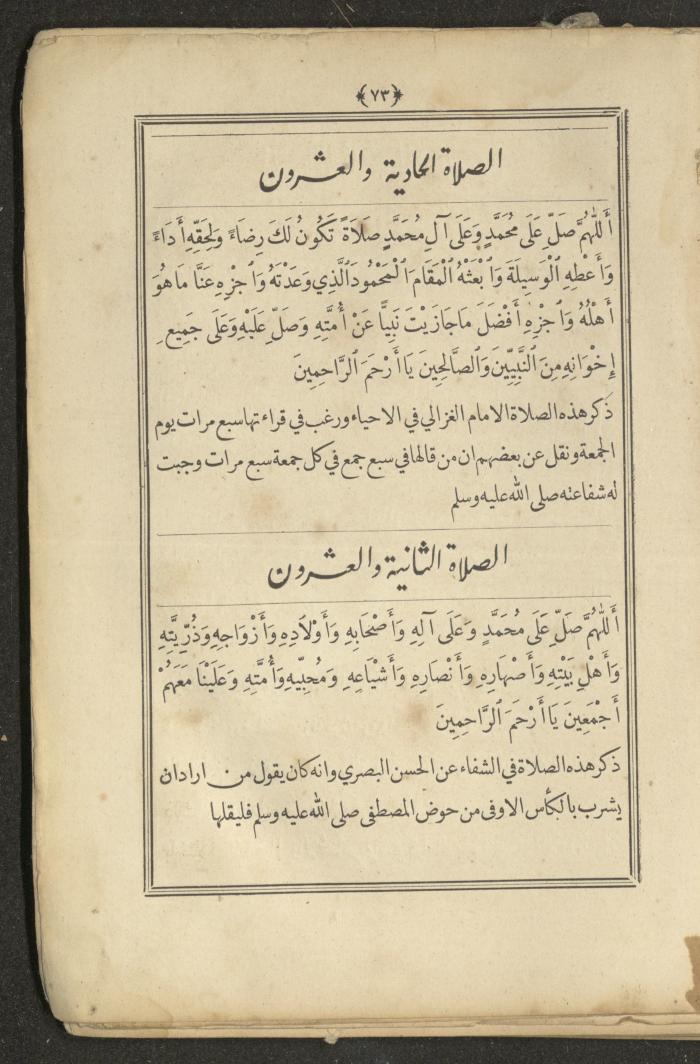 ﴿٧٣﴾
الصلاة الحادية والعشرون
أَللّٰهُمَّ صَلِّ عَلَى مُحَمَّدٍ وَعَلَى آلِ مُحَمَّدٍ صَلَاةً تَكُونُ لَكَ رِضَاءً وَلِحَقِّهِ أَدَاءً
وَأَعْطِهِ ٱلْوَسِيلَةَ وَٱبْعَثْهُ ٱلْمَقَامَ ٱلْمَحْمُودَ ٱلَّذِي وَعَدْتَهُ وَٱجْزِهِ عَنَّا مَا هُوَ
أَهْلُهُ وَٱجْزِهِ أَفْضَلَ مَا جَازَيْتَ نَبِيًّا عَنْ أُمَّتِهِ وَصَلِّ عَلَيْهِ وَعَلَى جَمِيعِ
إِخْوَانِهِ مِنَ ٱلنَّبِيِّينَ وَٱلصَّالِحِينَ يَا أَرْحَمَ ٱلرَّاحِمِينَ
ذكر هذه الصلاة الامام الغزالي في الاحياء ورغب في قراءتها سبع مرات يوم
الجمعة ونقل عن بعضهم ان من قالها في سبع جمع في كل جمعة سبع مرات وجبت
له شفاعته صلى الله عليه وسلم
الصلاة الثانية والعشرون
أَللّٰهُمَّ صَلِّ عَلَى مُحَمَّدٍ وَعَلَى آلِهِ وَأَصْحَابِهِ وَأَوْلَادِهِ وَأَزْوَاجِهِ وَذُرِّيَّتِهِ
وَأَهْلِ بَيْتِهِ وَأَصْهَارِهِ وَأَنْصَارِهِ وَأَشْيَاعِهِ وَمُحِبِّيهِ وَأُمَّتِهِ وَعَلَيْنَا مَعَهُمْ
أَجْمَعِينَ يَا أَرْحَمَ ٱلرَّاحِمِينَ
ذكر هذه الصلاة في الشفاء عن الحسن البصري وانه كان يقول من اراد ان
يشرب بالكأس الاوفى من حوض المصطفى صلى الله عليه وسلم فليقلها